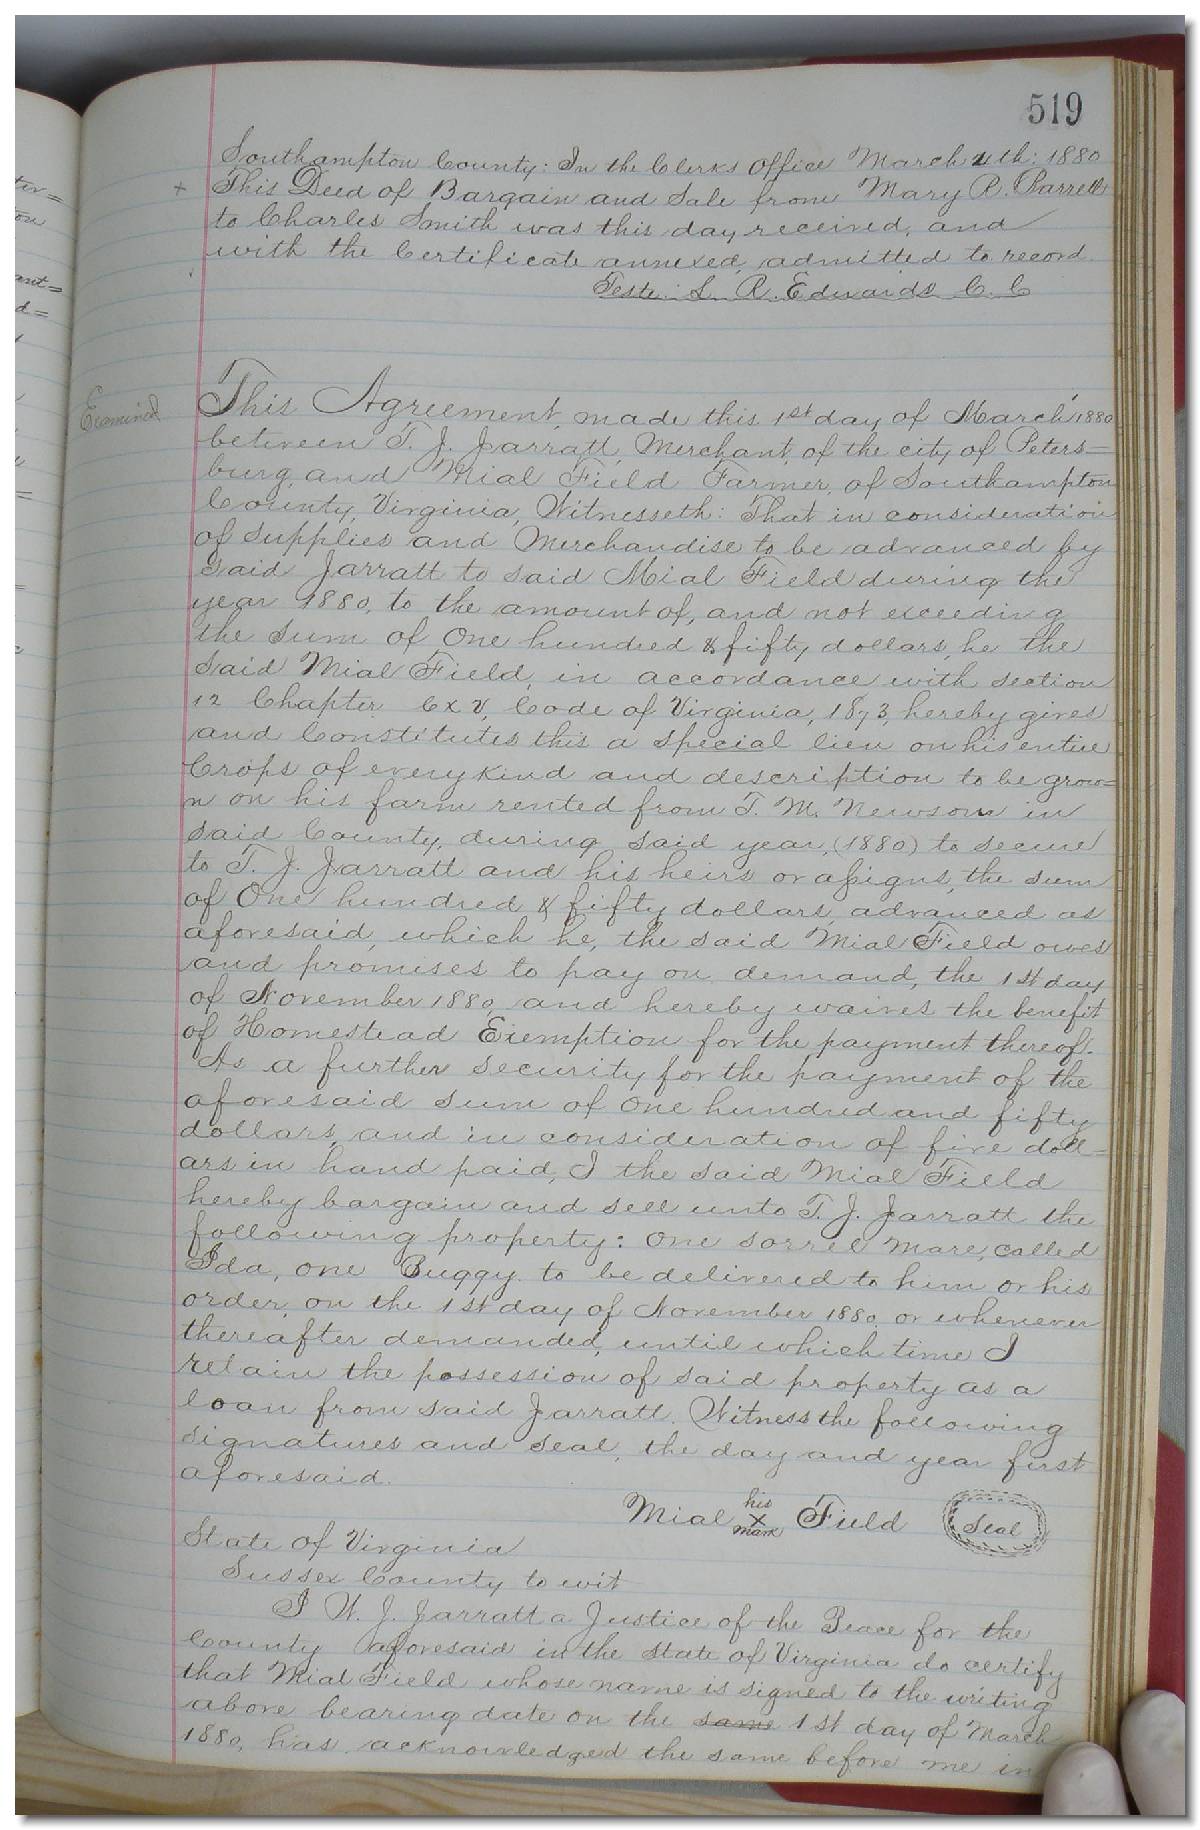 519
Southampton County: In the Clerks Office March 4th: 1880
+ This Deed of Bargain and Sale from Mary R. Barrett
to Charles Smith was this day received, and
with the Certificate annexed, admitted to record.
Teste: L. R. Edwards C. C
Examined
This Agreement, made this 1st day of March 1880
between T. J. Jarratt, Merchant, of the city of Peters=
burg, and Mial Field Farmer, of Southampton
County, Virginia, Witnesseth: That in consideration
of supplies and Merchandise to be advanced by
said Jarratt to said Mial Field during the
year 1880, to the amount of, and not exceeding
the sum of One hundred & fifty dollars, he the
said Mial Field, in accordance with section
12 Chapter CXV, Code of Virginia, 1873, hereby gives
and Constitutes this a special lien on his entire
Crops of every kind and description to be grow=
n on his farm rented from T. M. Newsom in
said County, during said year, (1880) to secure
to T. J. Jarratt and his heirs or assigns, the sum
of One hundred & fifty dollars, advanced as
aforesaid, which he, the said Mial Field owes
and promises to pay on demand, the 1st day
of November 1880, and hereby waives the benefit
of Homestead Exemption for the payment thereof.
As a further security for the payment of the
aforesaid sum of one hundred and fifty
dollars, and in consideration of five doll=
ars in hand paid, I the said Mial Field
hereby bargain and sell unto T. J. Jarratt the
following property: One sorrel Mare, called
Ida, one Buggy to be delivered to him or his
order, on the 1st day of November 1880, or whenever
thereafter demanded, until which time I
retain the possession of said property as a
loan from said Jarratt. Witness the following
signatures and seal, the day and year first
aforesaid.
his
Mial X Field Seal
mark
State of Virginia
Sussex County to wit
I W. J. Jarratt a Justice of the Peace for the
County aforesaid in the State of Virginia do certify
that Mial Field whose name is signed to the writing
above bearing date on the same 1st day of March
1880, has acknowledged the same before me in